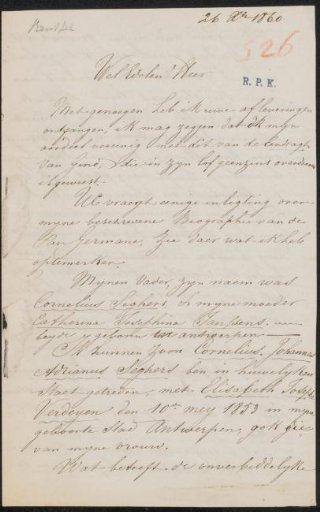 26 Xbr 1860
526
R. P. K.
Wel Edelen Heer
Met genoegen heb ik uwe afleveringen
ontfangen, ik mag zeggen dat ik myn
oordeel vereenig met dit van de
van gend, die in zyn lof geenzints overdreven
is geweest.
UE vraagt eenige inligting over
myne beschrevene Biographie van de
Heer Germane, zie daer wat ik heb
op te merken.
Mynen Vader, zyn naem was
Cornelius Seghers en myne moeder
Catharina Josephina Janssens,
beyde geboren te antwerpen
Ik hunnen zoon Cornelius, Johannes
Adrianus Seghers ben in huwelyken
staet getreden, met Elisabeth Joseph
Verdeyen den 10en mey 1853 in myn
geboorte stad Antwerpen, ook die
van myne vrouw.
Wat betreft de onverbiddelyke